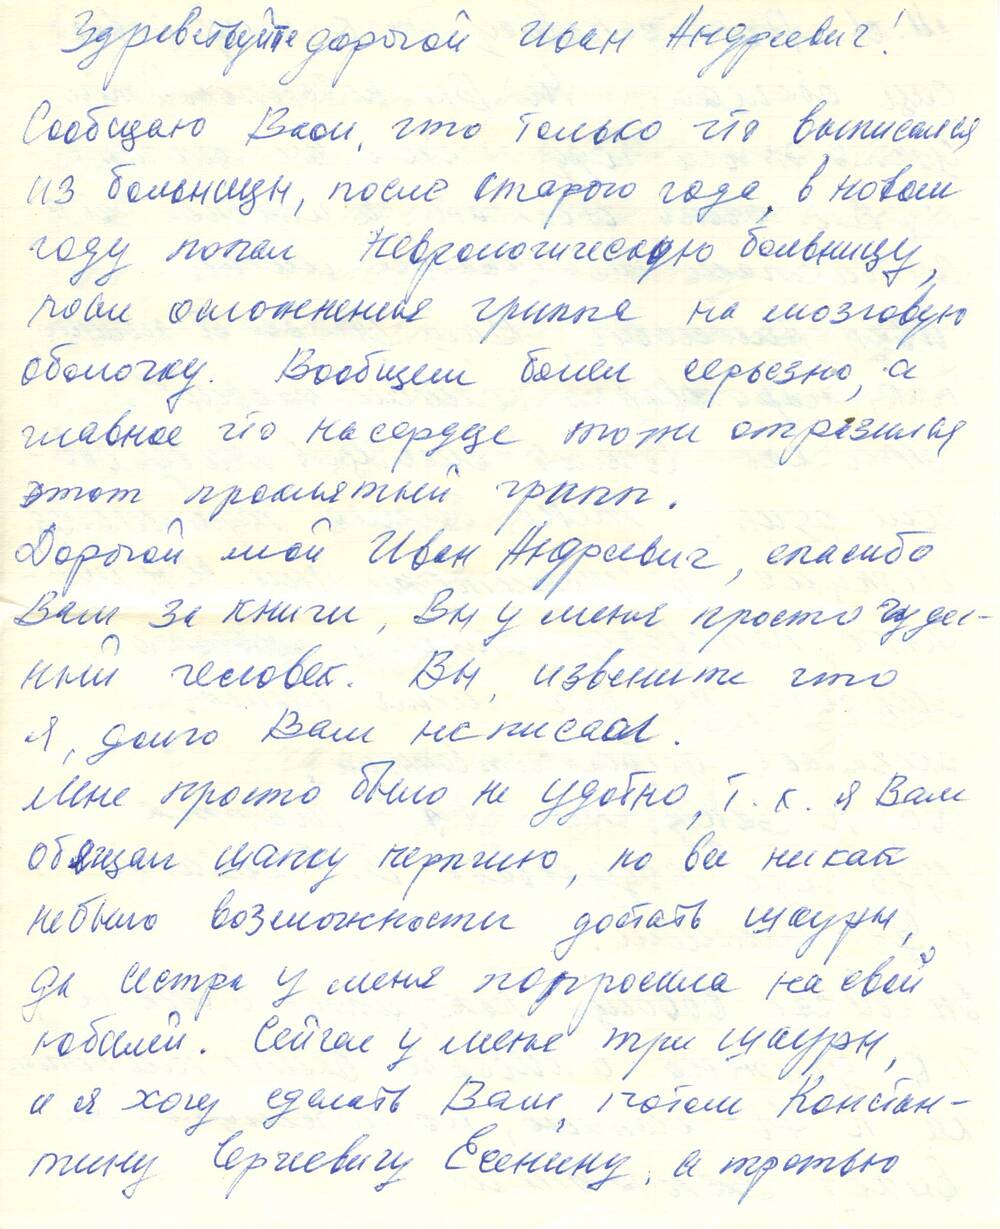 Здравствуйте дорогой Иван Андреевич!
Сообщаю Вам, что только что выписался
из больницы, после старого года, в новом
году попал Неврологическую больницу,
после осложнения гриппа на мозговую
оболочку. Вообщем болел серьезно, а
главное что на сердце тоже отразился
этот проклятый грипп.
Дорогой мой Иван Андреевич, спасибо
Вам за книги, Вы у меня просто чудес-
ный человек. Вы, извените что
я, долго Вам не писал.
Мне просто было не удобно, т.к. я Вам
обящал шапку нерпичью, но все никак
небыло возможности достать шкуры,
да сестра у меня попросила на свой
юбилей. Сейчас у меня три шкуры,
и я хочу сделать Вам, потом Констан-
тину Сергеевичу Есенину, а третью